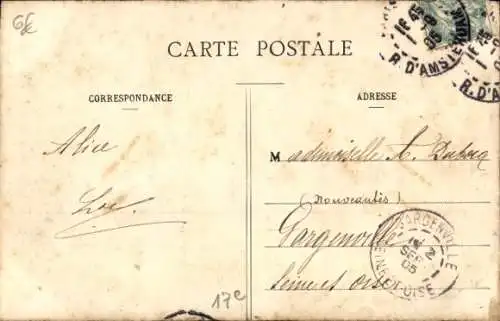 6€
CARTE POSTALE
CORRESPONDANCE
ADRESSE
Alice
Mademoiselle A.
(Nouveautés)
Gargenville
Seine et oise
17e
R. D'AMSTERDAM
16 45
R. D'A
GARGENVILLE
SEP
05
SEINE-ET-OISE